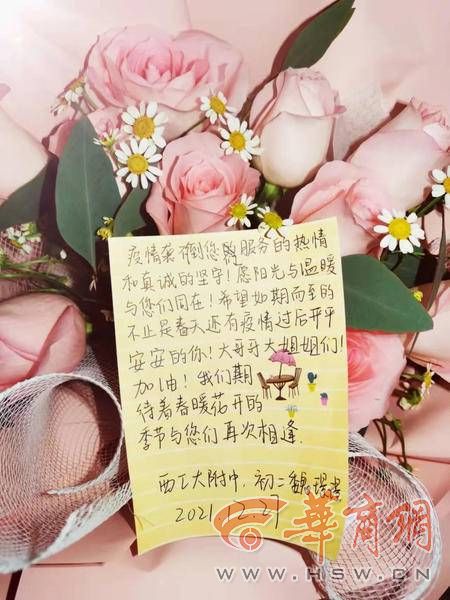 疫情袭倒您服务的热情
和真诚的坚守!愿阳光与温暖
与您们同在!希望如期而至的
不止是春天还有疫情过后平平
安安的你!大哥哥大姐姐们!
加油!我们期
待着春暖花开的
季节与您们再次相逢.
西工大附中.初二魏
2021.12.27
华商网
WWW.HSW.CN